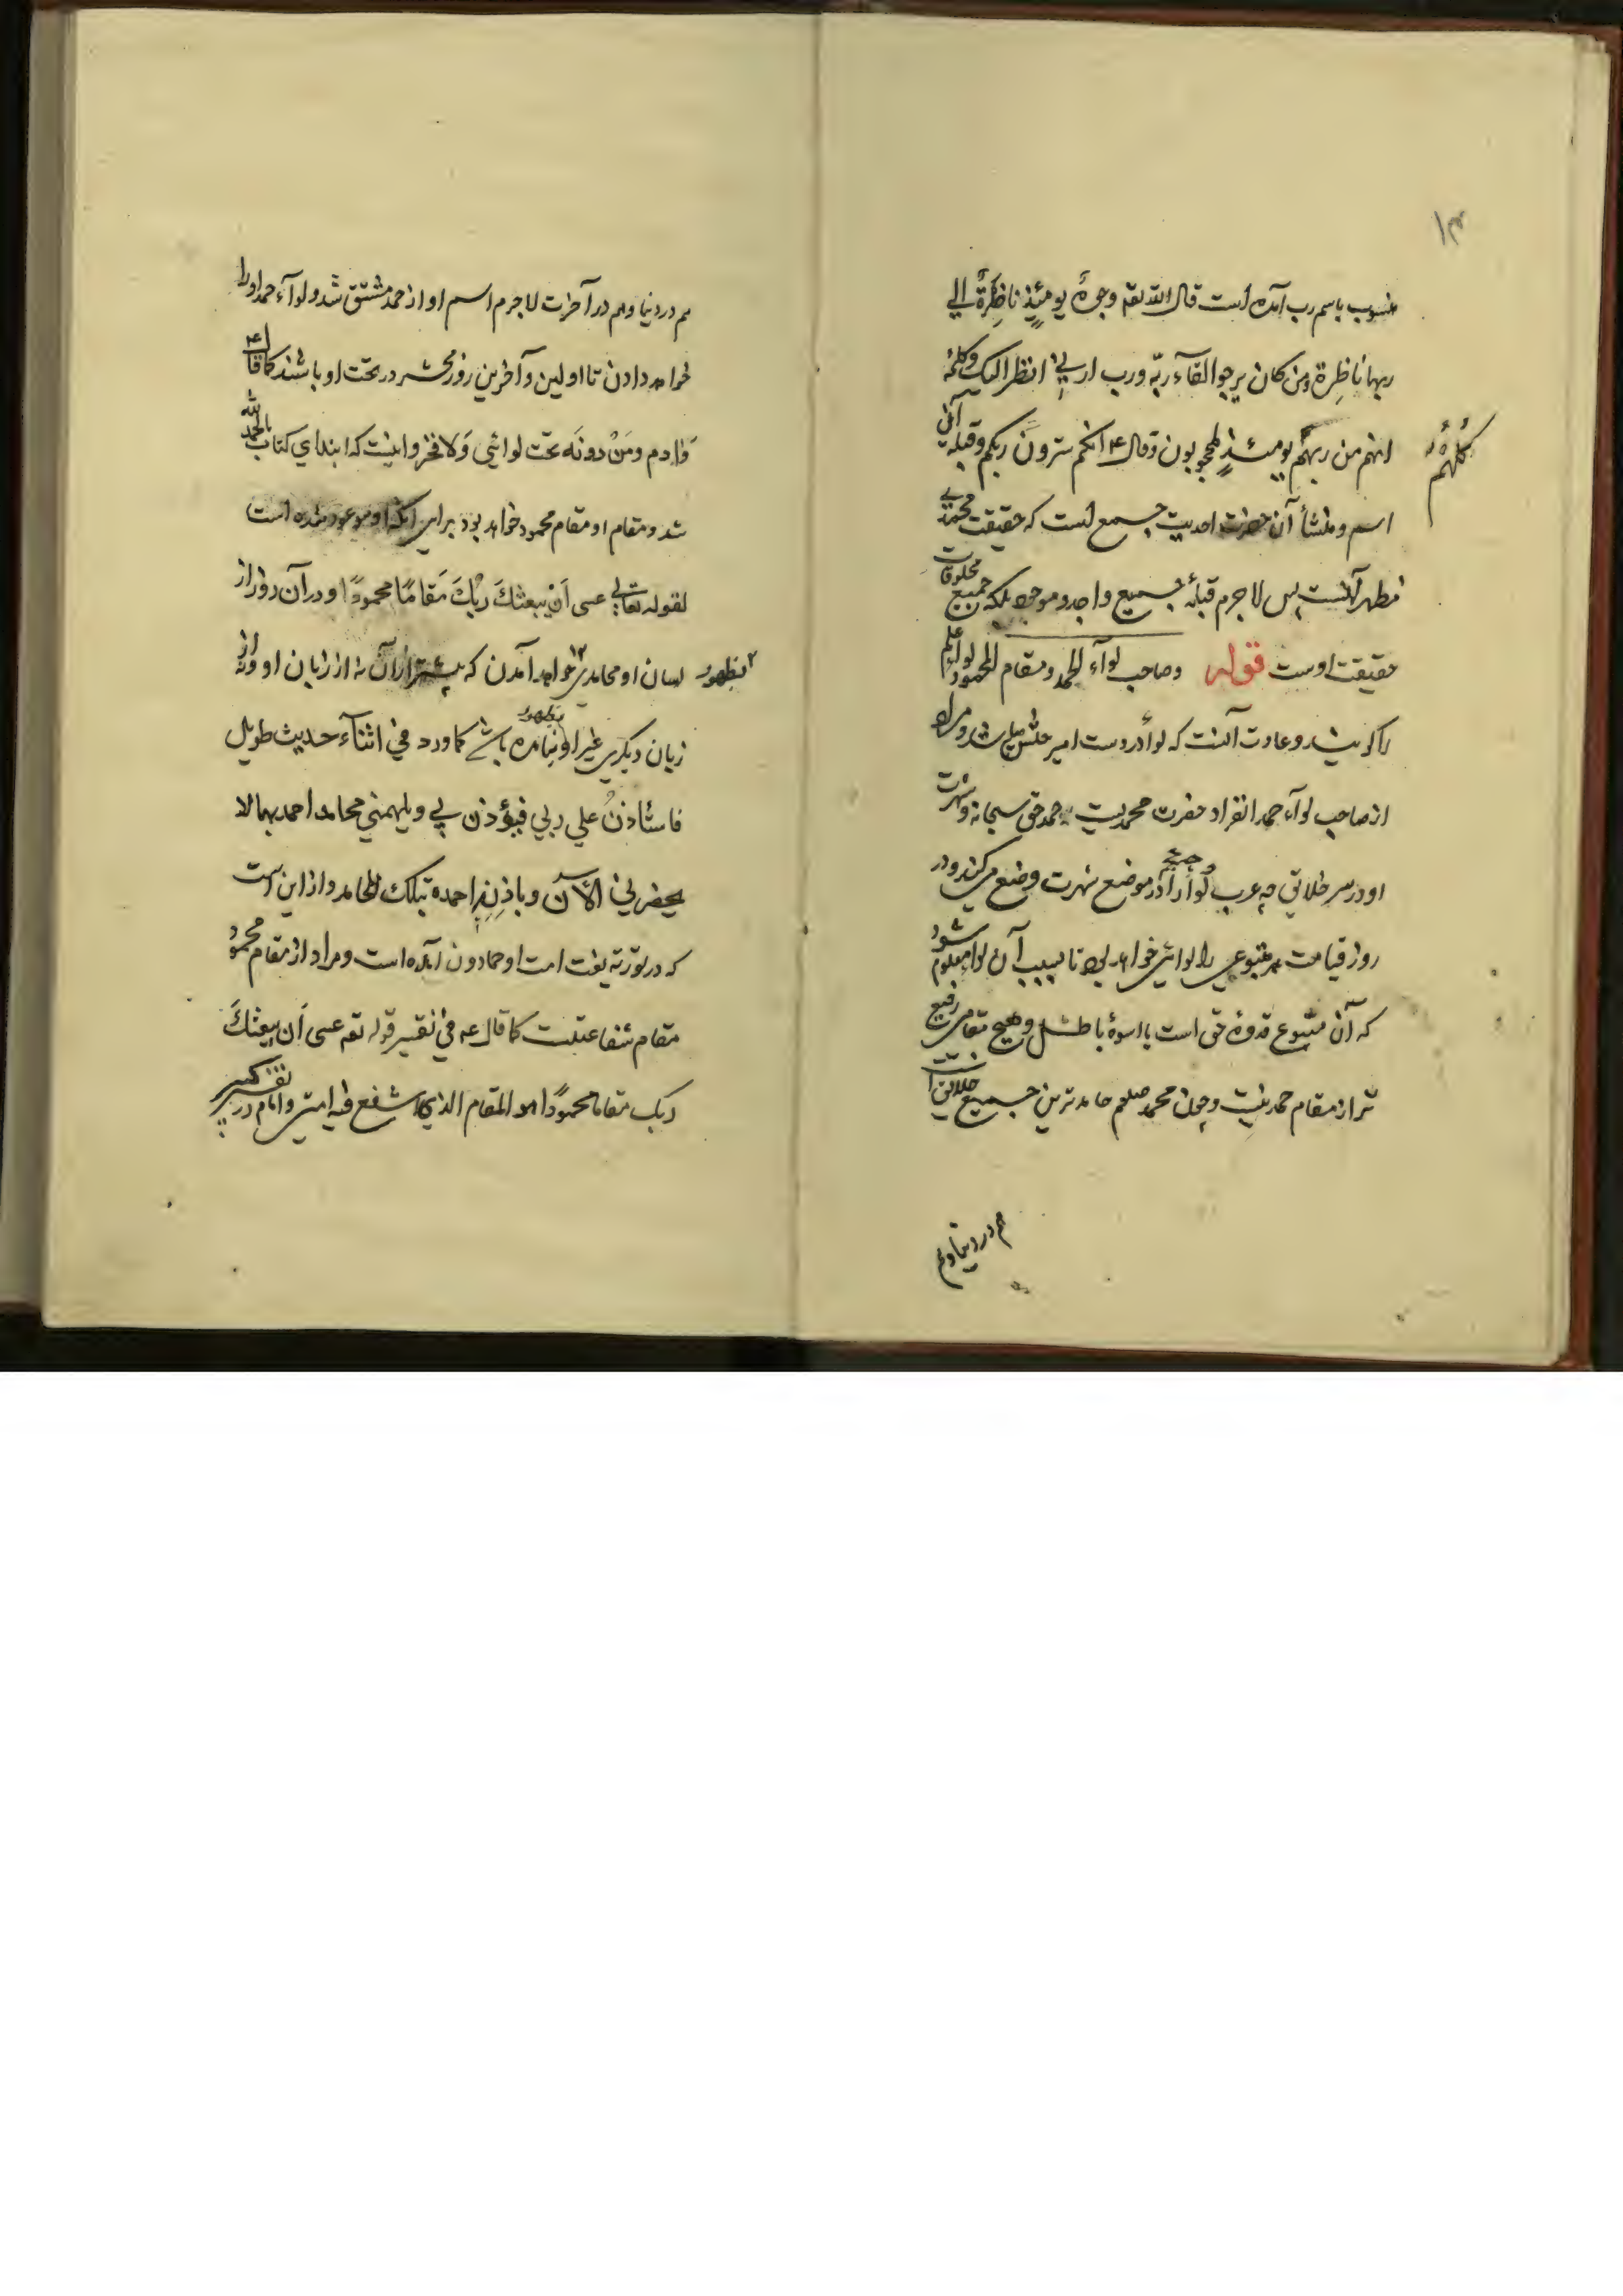 ۱۳
منسوب باسم رب آمده است قال الله تعه وجوهٌ يومئذٍ ناضِرةٌ الي
ربها ناظِرة ومن كان يرجوا لقآء ربّه ورب ارني انظر اليك وكلمهٔ
كُلُّهُم
انهم من ربهم يومئذٍ لمحجوبون وقال ع انكم سترون ربكم وقبلهٔ اين
اسم و منشأ آن حضرت احديت جمع است كه حقيقت محمدي
مظهر آنست پس لا جرم قبلهٔ جميع واجد و موجود بلكه جميع مخلوقات
حقيقت اوست قوله وصاحب لوآء الحمد ومقام المحمود لوا علم
را كويند و عادت آنست كه لوا در دست امير جيش ميباشد و مراد
از صاحب لوآء حمد انفراد حضرت محمديست بحمد حق سبحانه و شهرت
او در سر خلائق چه عرب لوا را در موضع شهرت وضع ميكنند و در
روز قيامت هر متبوعي را لوائي خواهد بود تا بسبب آن لوا معلوم شود
كه آن متبوع قدوهٔ حق است يا اسوهٔ باطل و هيچ مقامي رفيع
تر از مقام حمد نيست و چون محمد صلعم حامد ترين جميع خلائق است
هم در دنيا و هم
هم در دنيا و هم در آخرت لا جرم اسم او از حمد مشتق شد و لوآء حمد او را
خواهد دادن تا اولين و آخرين روز محشر در تحت او باشند كما قال ع
آدم ومَنْ دونَه تحت لوائي وَلا فخر و اينست كه ابتداي كتاب بالحمد لله
شد و مقام او مقام محمود خواهد بود براي آنكه او موعود شده است
لقوله تعالي عسى اَن يبعثكَ ربّكَ مَقامًا محمودًا و در آن روز از
لسان او محامدي خواهد آمدن كه پيشتر از آن نه از زبان او و نه از
بظهور
زبان ديكري غير او بظهور نيامده باشد كما ورد في اثنآء حديث طويل
فاستأذنُ علي ربي فيؤذن لي ويلهمني محامد احمد بها لا
يحضرني الآن وباذن احمده بتلك المحامد و از اين است
كه در تورته نعت امت او حمادون آمده است و مراد از مقام محمود
مقام شفاعتست كما قال عه في تفسير قوله تعه عسى اَن يبعثكَ
ربك مقاما محمودًا هو المقام الذي اشفع فيه امتي و امام در تفسير